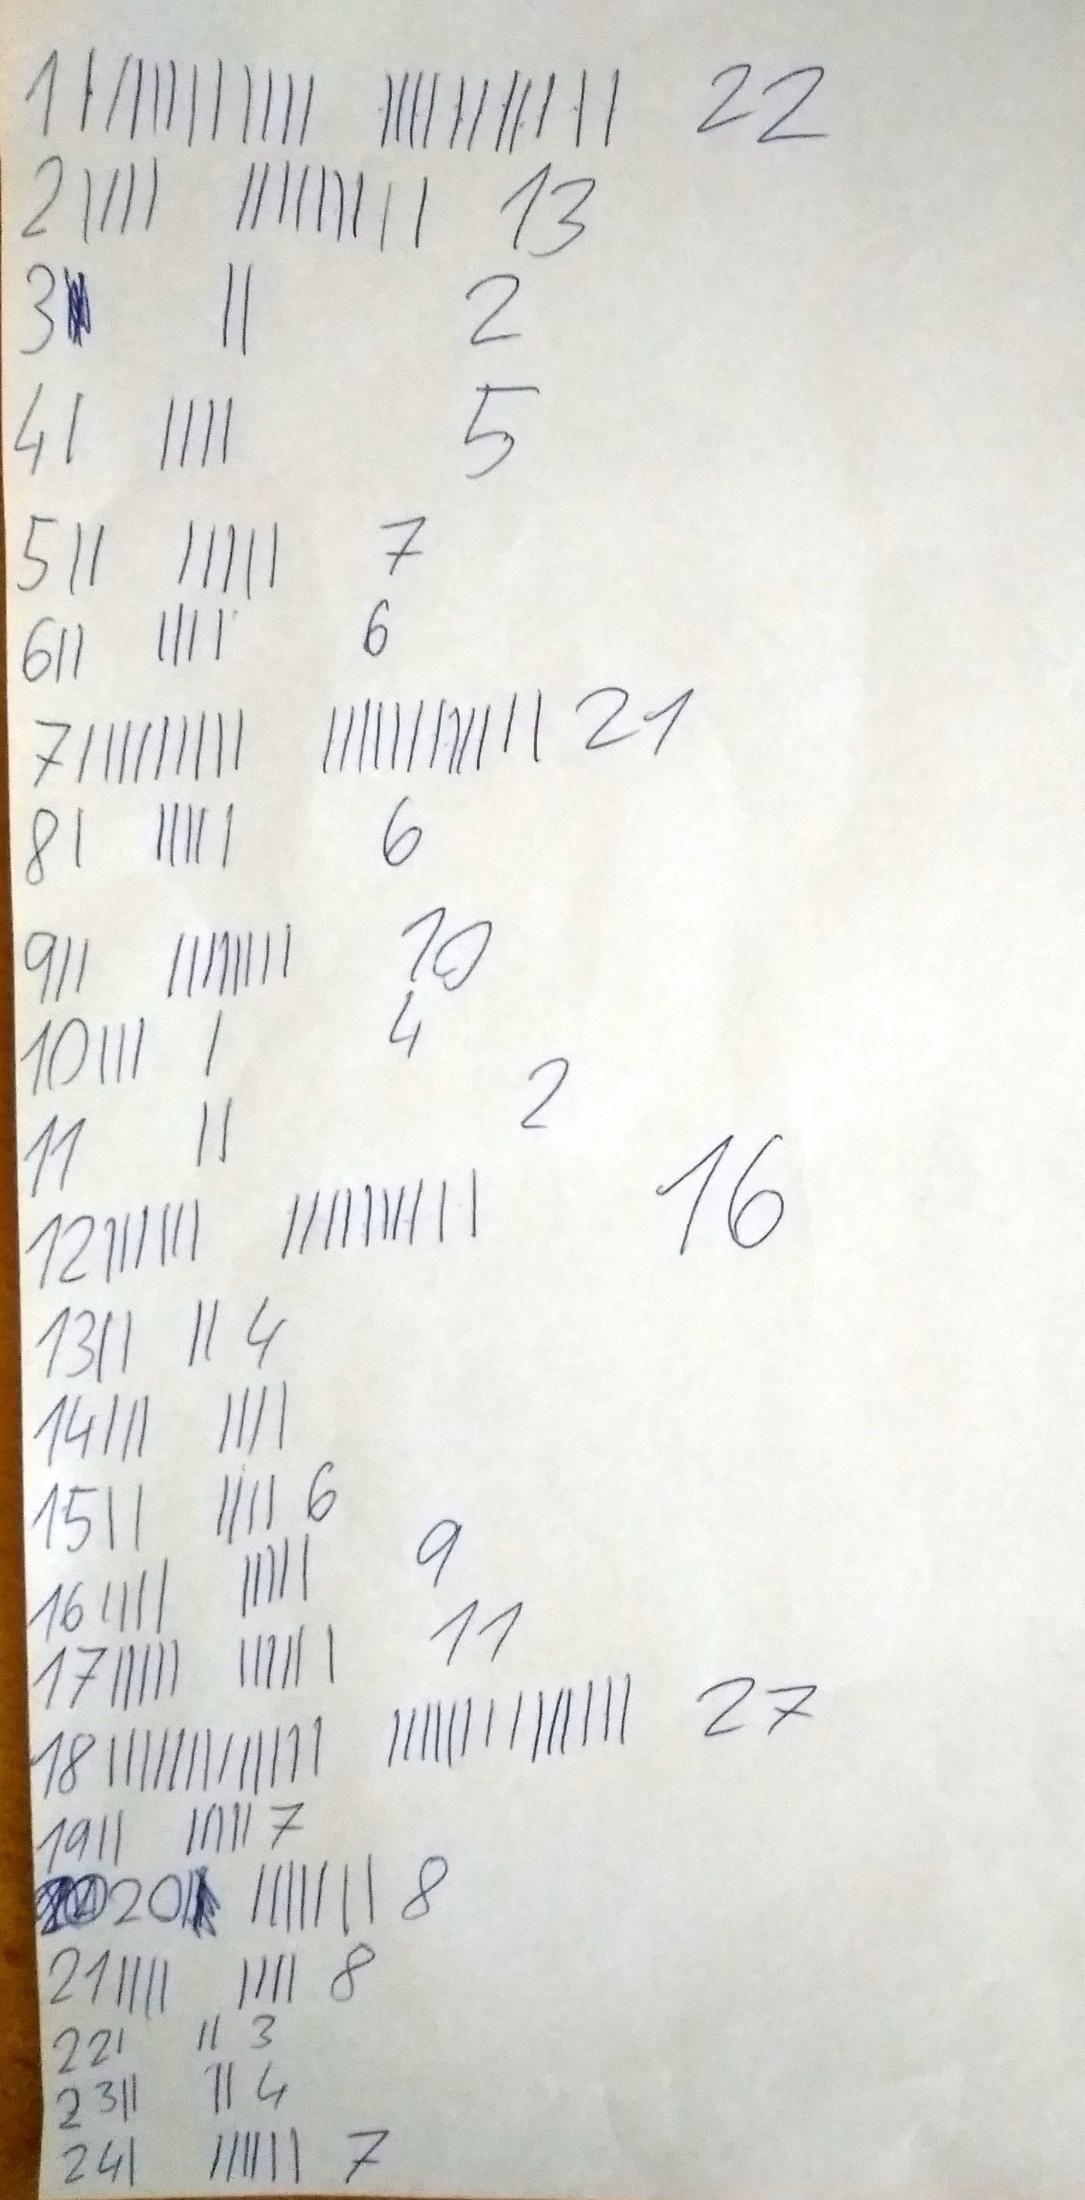 1 ||||||||||| ||||||||||| 22
2 |||| ||||||||| 13
3 || 2
4 | |||| 5
5 || ||||| 7
6 || |||| 6
7 ||||||||| |||||||||||| 21
8 | ||||| 6
9 || |||||||| 10
10 ||| | 4
11 || 2
12 |||||| |||||||||| 16
13 || || 4
14 ||| ||||
15 || |||| 6
16 |||| ||||| 9
17 ||||| |||||| 11
18 ||||||||||||| |||||||||||||| 27
19 || ||||| 7
20 |||||||| 8
21 |||| |||| 8
22 | || 3
23 || || 4
24 | |||||| 7